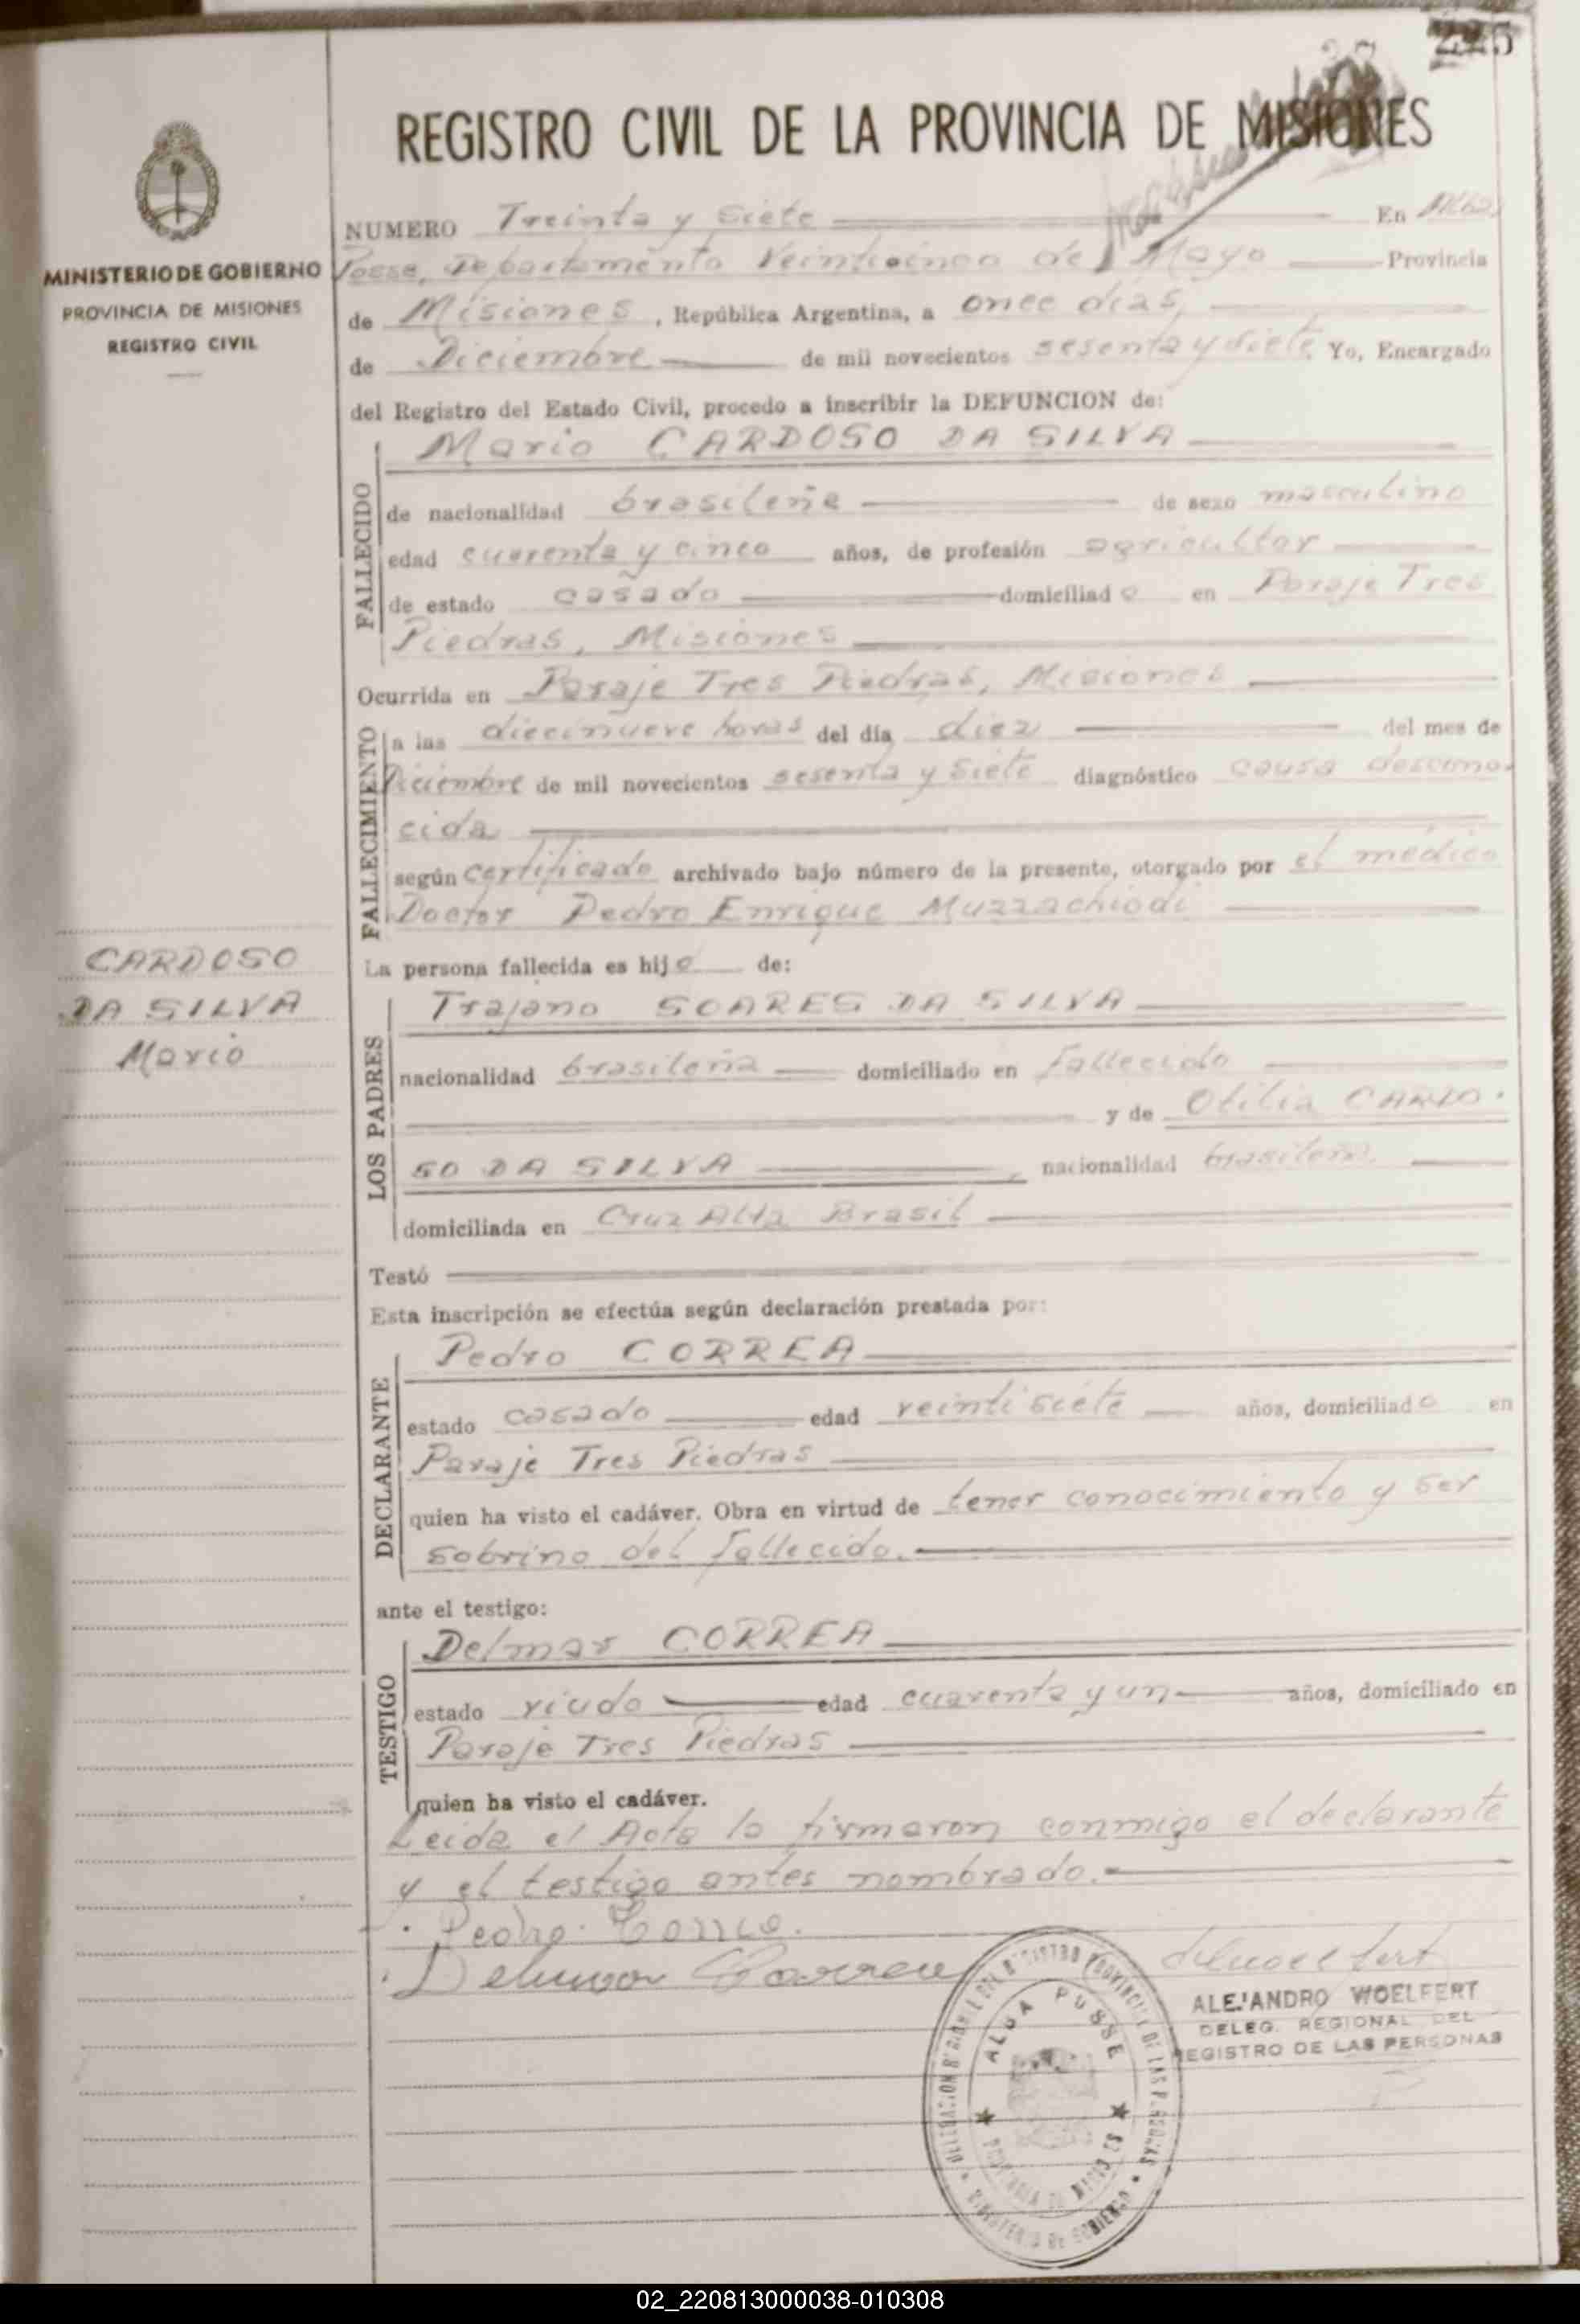 225
REGISTRO CIVIL DE LA PROVINCIA DE MISIONES
MINISTERIO DE GOBIERNO
PROVINCIA DE MISIONES
REGISTRO CIVIL
NUMERO Treinta y Siete En Alba
Posse, Departamento Veinticinco de Mayo Provincia
de Misiones, República Argentina, a once días,
de Diciembre de mil novecientos sesenta y siete Yo, Encargado
del Registro del Estado Civil, procedo a inscribir la DEFUNCION de:
FALLECIDO
Mario CARDOSO DA SILVA
de nacionalidad brasileña de sexo masculino
edad cuarenta y cinco años, de profesión agricultor
de estado casado domiciliado en Paraje Tres
Piedras, Misiones
Ocurrida en Paraje Tres Piedras, Misiones
FALLECIMIENTO
a las diecinueve horas del día diez del mes de
Diciembre de mil novecientos sesenta y siete diagnóstico causa descono-
cida
según certificado archivado bajo número de la presente, otorgado por el médico
Doctor Pedro Enrique Muzzachiodi
CARDOSO
DA SILVA
Mario
La persona fallecida es hijo de:
LOS PADRES
Trajano SOARES DA SILVA
nacionalidad brasileña domiciliado en fallecido
y de Otilia CARDO-
SO DA SILVA, nacionalidad brasileña
domiciliada en Cruz Alta Brasil
Testó
Esta inscripción se efectúa según declaración prestada por:
DECLARANTE
Pedro CORREA
estado casado edad veintisiete años, domiciliado en
Paraje Tres Piedras
quien ha visto el cadáver. Obra en virtud de tener conocimiento y ser
sobrino del fallecido.
ante el testigo:
TESTIGO
Delmar CORREA
estado viudo edad cuarenta y un años, domiciliado en
Paraje Tres Piedras
quien ha visto el cadáver.
Leida el Acta la firmaron conmigo el declarante
y el testigo antes nombrado.-
Pedro Correa
Delmar Correa
ALEJANDRO WOELFERT
DELEG. REGIONAL DEL
REGISTRO DE LAS PERSONAS
ALBA POSSE
02_220813000038-010308